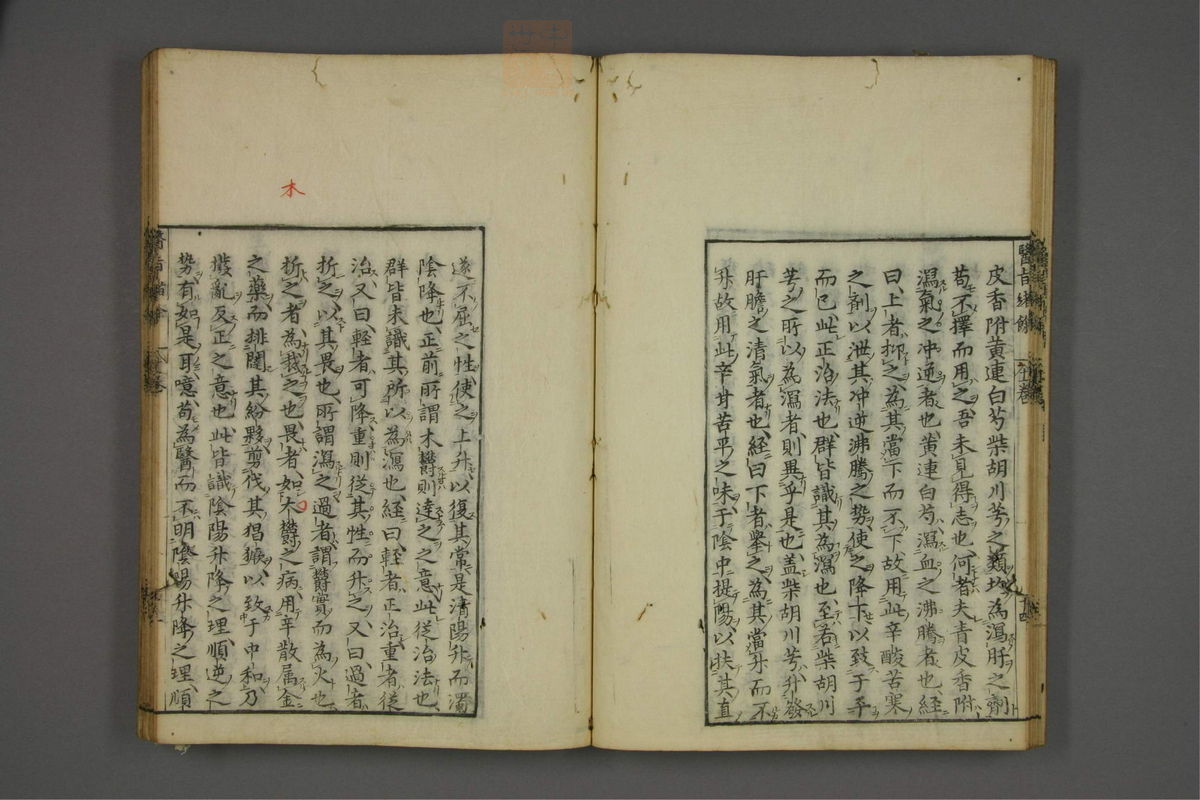 醫旨緒餘
上卷
皮香附黃連白芍柴胡川芎之類均為瀉肝之劑
苟不擇而用之吾未見得志也何者夫青皮香附
瀉氣之冲逆者也黃連白芍瀉血之沸騰者也經
曰上者抑之為其當下而不下故用此辛酸苦寒
之劑以泄其冲逆沸騰之勢使之降下以致于平
而已此正治法也群皆識其為瀉也至若柴胡川
芎之所以為瀉者則異乎是也盖柴胡川芎升發
肝膽之清氣者也經曰下者舉之為其當升而不
升故用此辛甘苦平之味于陰中提陽以扶其直
木
遂不屈之性使之上升以復其常是清陽升而濁
陰降也正前所謂木欝則達之之意此從治法也
群皆未識其所以為瀉也經曰輕者正治重者從
治又曰輕者可降重則從其性而升之又曰過者
折之以其畏也所謂瀉之過者謂欝實而為火也
折之者為我之也畏者如木欝之病用辛散属金
之藥而排闥其紛夥剪伐其猖獗以致于中和乃
撥亂反正之意也此皆識陰陽升降之理順逆之
勢有如是耳噫苟為醫而不明陰陽升降之理順